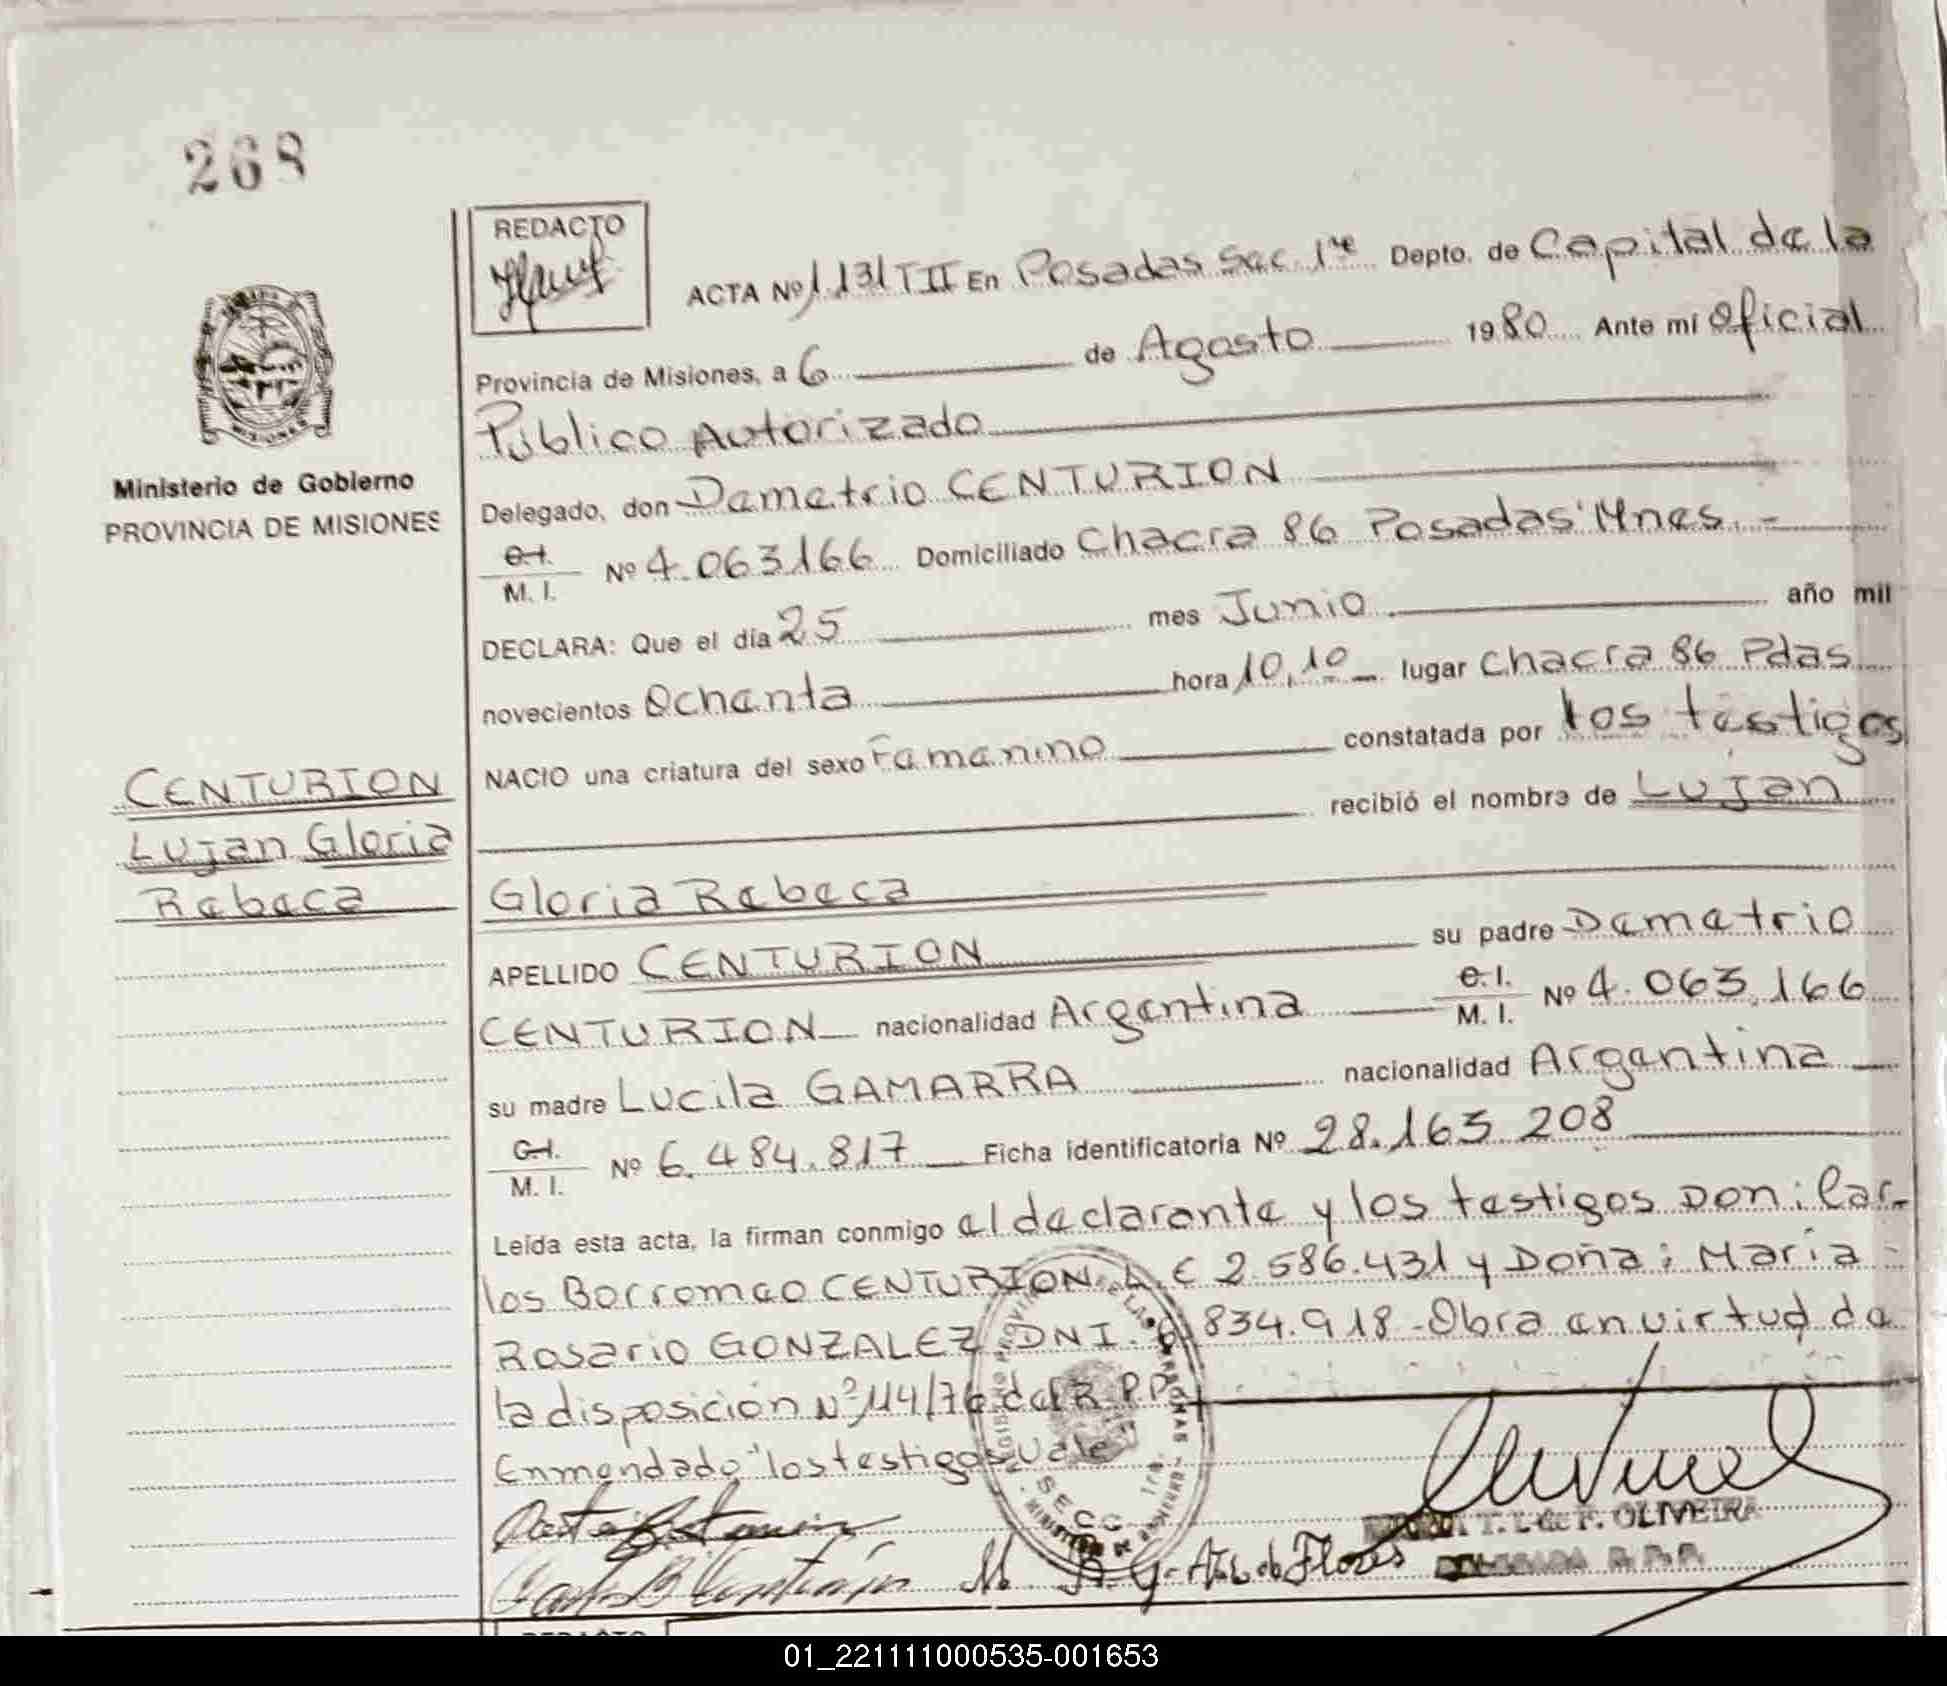 268
REDACTO
ACTA Nº 1.131 TII En Posadas Sec 1ra Depto. de Capital de la
Provincia de Misiones, a 6 de Agosto 1980 Ante mí Oficial
Público Autorizado
Delegado, don Demetrio CENTURION
C.I. M. I. Nº 4.063.166 Domiciliado Chacra 86 Posadas Mnes.-
DECLARA: Que el día 25 mes Junio año mil
novecientos Ochenta hora 10,10 lugar Chacra 86 Pdas
NACIO una criatura del sexo Femenino constatada por los testigos
recibió el nombre de Lujan
Gloria Rebeca
APELLIDO CENTURION su padre Demetrio
CENTURION nacionalidad Argentina C.I. M. I. Nº 4.063.166
su madre Lucila GAMARRA nacionalidad Argentina
C.I. M. I. Nº 6.484.817 Ficha identificatoria Nº 28.163.208
Leída esta acta, la firman conmigo el declarante y los testigos Don: Car-
los Borromeo CENTURION L.E 2.586.431 y Doña: María
Rosario GONZALEZ DNI. 834.918-Obra en virtud de
la disposición Nº 114/76 del R.P.P.
Enmendado "los testigos" vale
Ministerio de Gobierno
PROVINCIA DE MISIONES
CENTURION
Lujan Gloria
Rebeca
MISIONES
SECC 1ra.
de Flores
T. L. de F. OLIVEIRA
DELEGADA R. P. P.
REDACTO
01_221111000535-001653